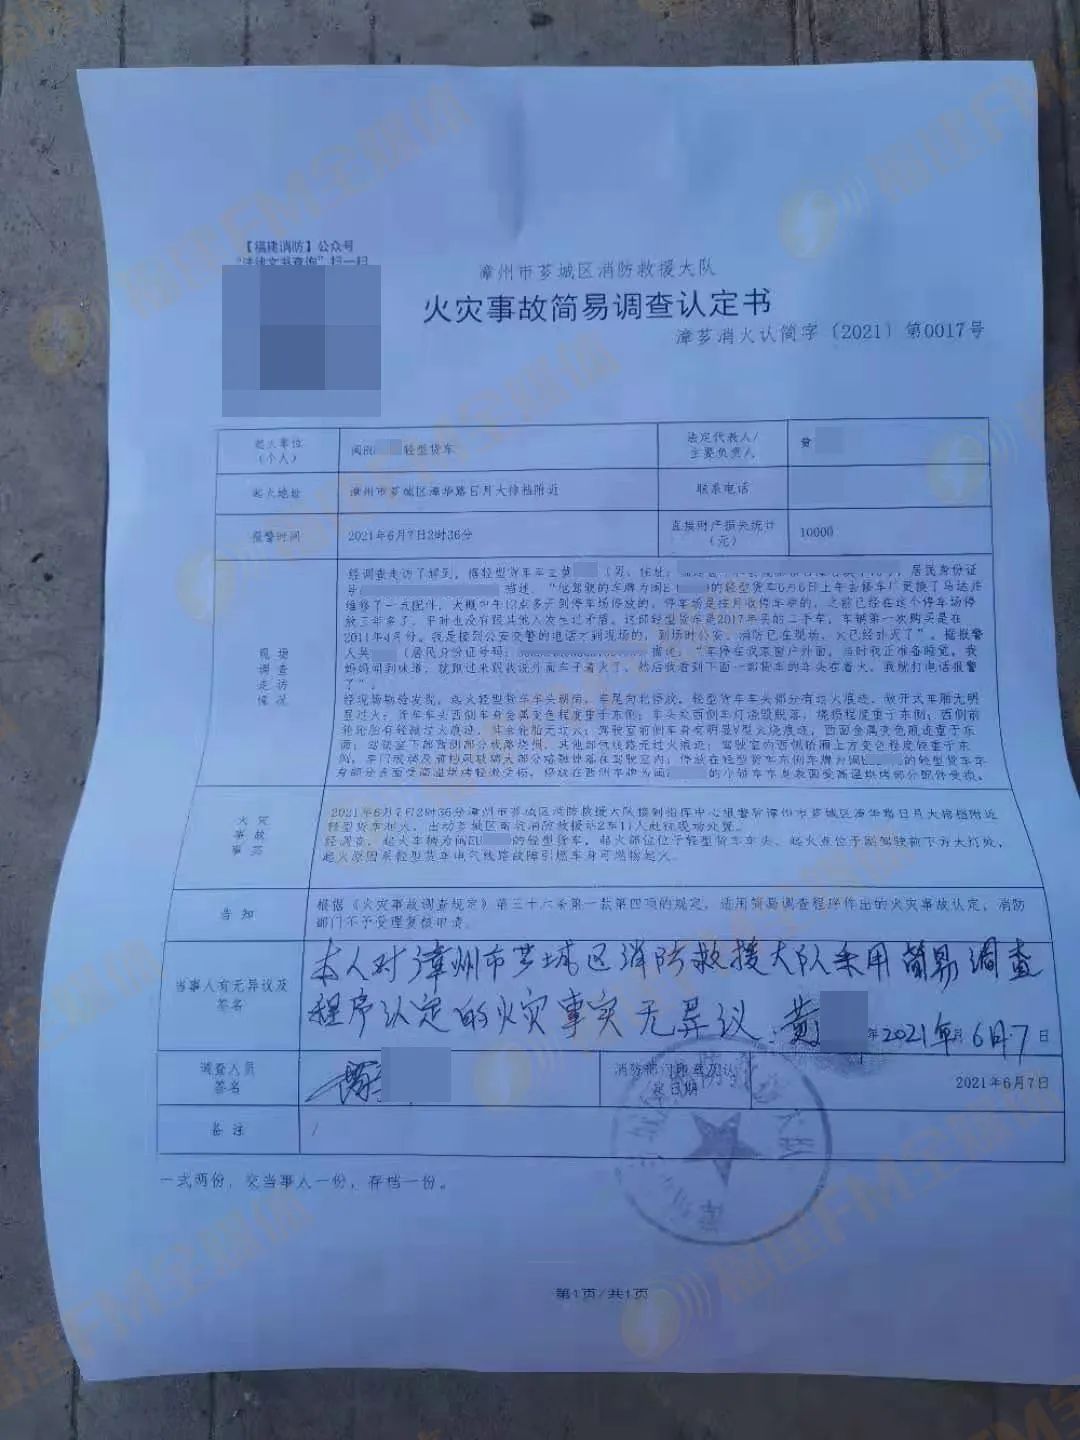 【福建消防】公众号
“法律文书查询”扫一扫
漳州市芗城区消防救援大队
火灾事故简易调查认定书
漳芗消火认简字〔2021〕第0017号
起火单位
（个人）
轻型货车
法定代表人/
主要负责人
黄
起火地址
漳州市芗城区漳华路日月大排档附近
联系电话
报警时间
2021年6月7日2时36分
直接财产损失统计
（元）
10000
现场
调查
走访
情况
经调查走访了解到，据轻型货车车主黄
（男，住址：
居民身份证
号码：
描述，“他驾驶的车牌为闽E
的轻型货车6月6日上午去修车厂更换了马达并
维修了一点配件，大概中午12点多开到停车场停放的，停车场是按月收停车费的，之前已经在这个停车场停
放了年多了，平时也没有跟其他人发生过矛盾。这部轻型货车是2017年买的二手车，车辆第一次购买是在
2011年4月份。我是接到公安交警的电话才到现场的，到场时公安、消防已在现场，火已经扑灭了”。据报警
人吴
（居民身份证号码：
描述：“车停在我家窗户外面，当时我正准备睡觉，我
妈妈闻到味道，就跑过来跟我说外面车子着火了，然后我看到下面一部货车的车头在着火，我就打电话报警
了”。
经现场勘验发现，起火轻型货车车头朝南，车尾向北停放，轻型货车车头部分有过火痕迹，敞开式车厢无明
显过火；货车车头西侧车身金属变色程度重于东侧；车头处西侧车灯烧毁脱落，烧损程度重于东侧；西侧前
轮轮胎有轻微过火痕迹，其余轮胎无过火；驾驶室前侧车身有明显V型火烧痕迹，西面金属变色痕迹重于东
面；驾驶室下部西侧部分线路烧损，其他部位线路无过火痕迹；驾驶室内西侧
上方变色程度较重于东
侧，车门玻璃及前挡风玻璃大部分熔融掉落在驾驶室内；停放在轻型货车东侧车牌为闽E
的轻型货车车
身部分表面受高温烘烤轻微受损，停放在西侧车牌为闽
的小轿车车身表面受高温烘烤部分配件受损。
火灾
事故
事实
2021年6月7日2时36分漳州市芗城区消防救援大队接到指挥中心报警称漳州市芗城区漳华路日月大排档附近
轻型货车起火，出动芗城区南坑消防救援站2车11人赴往现场处置。
经调查，起火车辆为闽E
的轻型货车，起火部位位于轻型货车车头，起火点位于副驾驶前下方大灯处，
起火原因系轻型货车电气线路故障引燃车身可燃物起火。
告知
根据《火灾事故调查规定》第三十六条第一款第四项的规定，适用简易调查程序作出的火灾事故认定，消防
部门不予受理复核申请。
当事人有无异议及
签名
本人对漳州市芗城区消防救援大队采用简易调查
程序认定的火灾事实无异议。黄
年2021年月6月7日
调查人员
签名
消防部门
认
定日期
2021年6月7日
备注
/
一式两份，交当事人一份，存档一份。
第1页/共1页
福建FM全媒体